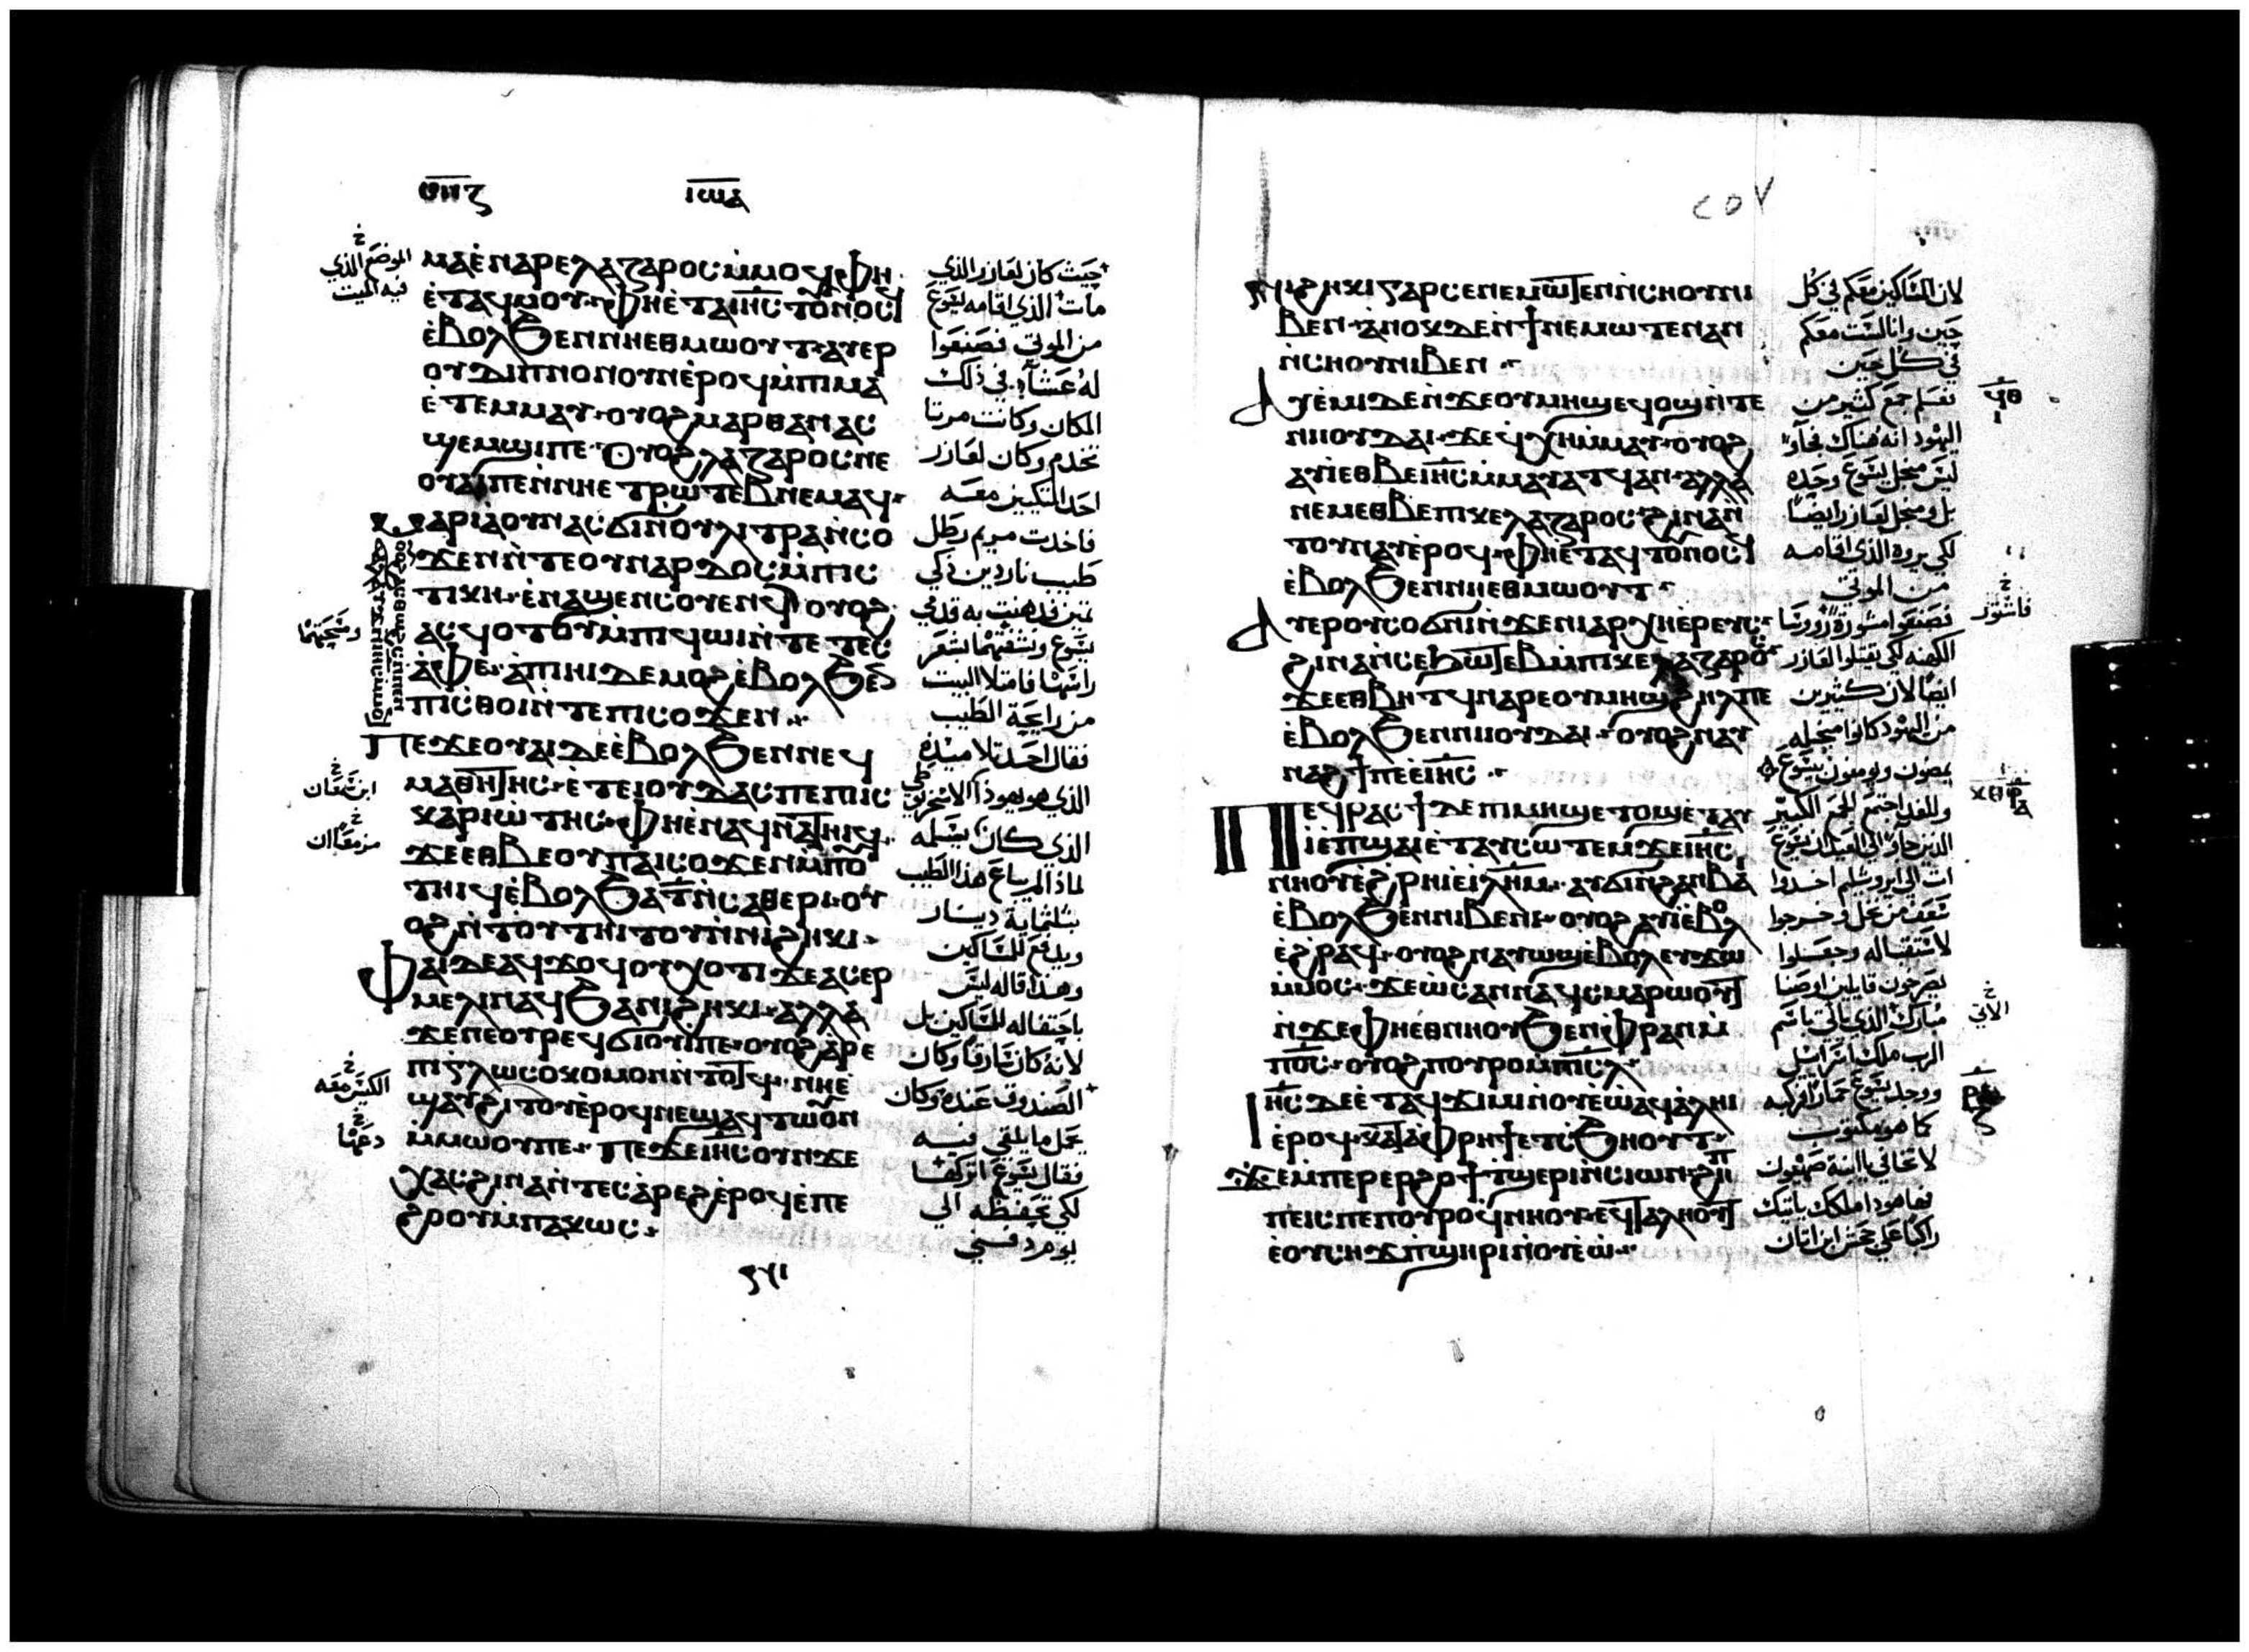 ⲓⲱⲁ
ⲙⲁⲉ̀ⲛⲁⲣⲉⲗⲁⲍⲁⲣⲟⲥⲙ̀ⲙⲟϥⲫⲏ
ⲉ̀ⲧⲁϥⲙⲟⲩ ⲫⲏⲉ̀ⲧⲁⲓⲏⲥ ⲧⲟⲩⲛⲟⲥϥ
ⲉ̀ⲃⲟⲗϧⲉⲛⲛⲏⲉⲑⲙⲱⲟⲩⲧ ⲁⲩⲉⲣ
ⲟⲩⲇⲓⲡⲛⲟⲛⲟⲩⲛⲉ̀ⲣⲟϥⲙ̀ⲡⲓⲙⲁ
ⲉ̀ⲧⲉⲙⲙⲁⲩ ⲟⲩⲟϩⲙⲁⲣⲑⲁⲛⲁⲥ
ϣⲉⲙϣⲓⲡⲉ ⲟⲩⲟϩⲗⲁⲍⲁⲣⲟⲥⲛⲉ
ⲟⲩⲁⲓⲡⲉⲛ̀ⲛⲏⲉⲧⲣⲱⲧⲉⲃⲛⲉⲙⲁϥ
ⲙⲁⲣⲓⲁⲟⲩⲛⲁⲥϭⲓⲛⲟⲩⲗⲓⲧⲣⲁⲛ̀ⲥⲟ
ϫⲉⲛⲛ̀ⲧⲉⲟⲩⲛⲁⲣⲇⲟⲥⲙ̀ⲡⲓⲥ
ⲧⲓⲕⲏ ⲉ̀ⲛⲁϣⲉⲛⲥⲟⲩⲉⲛϥ ⲟⲩⲟϩ
ⲁⲥϥⲟⲧⲟⲩⲙ̀ⲡⲓϥⲱⲓⲛ̀ⲧⲉ ⲧⲉⲥ
ⲁ̀ⲫⲉ ⲁ̀ⲡⲓⲏⲓⲇⲉⲙⲟϩⲉ̀ⲃⲟⲗϧⲉⲛ
ⲡⲓⲥⲑⲟⲓⲛ̀ⲧⲉⲡⲓⲥⲟϫⲉⲛ
ⲡⲉϫⲉⲟⲩⲁⲓⲇⲉⲉ̀ⲃⲟⲗϧⲉⲛⲛⲉϥ
ⲙⲁⲑⲏⲧⲏⲥ ⲉ̀ⲧⲉⲓⲟⲩⲇⲁⲥⲡⲉⲡⲓⲥ
ⲕⲁⲣⲓⲱ̀ⲧⲏⲥ ⲫⲏⲉ̀ⲛⲁϥⲛⲁⲧⲏⲓϥ
ϫⲉⲉⲑⲃⲉⲟⲩⲡⲁⲓⲥⲟϫⲉⲛⲙ̀ⲡⲟⲩ
ⲧⲏⲓϥⲉ̀ⲃⲟⲗϧⲁⲧ̅ⲛ̀ⲥⲁⲑⲉⲣⲓ ⲟⲩ
ⲟϩⲛ̀ⲧⲟⲩⲧⲏⲓⲧⲟⲩⲛ̀ⲛⲓϩⲏⲕⲓ
ⲫⲁⲓⲇⲉⲁϥϫⲟϥⲟⲩⲭⲟⲧⲓϫⲉⲁⲥⲉⲣ
ⲙⲉⲗⲓⲛⲁϥϧⲁⲛⲓϩⲏⲕⲓ ⲁⲗⲗⲁ
ϫⲉⲛⲉⲟⲩⲣⲉϥϭⲓⲟⲩⲓⲡⲉ ⲟⲩⲟϩⲁⲣⲉ
ⲡⲓⲅⲗⲱⲥⲟⲕⲟⲙⲟⲛⲛ̀ⲧⲟⲧϥ ⲛⲏⲉ
ϣⲁⲩϩⲓⲧⲟⲩⲉ̀ⲣⲟϥⲛⲉϣⲁϥⲧⲱⲟⲩⲛ
ⲙ̀ⲙⲱⲟⲩⲡⲉ ⲡⲉϫⲉⲓⲏⲥⲟⲩⲛϫⲉ
ⲭⲁⲥϩⲓⲛⲁⲛ̀ⲧⲉⲥⲁ̀ⲣⲉϩⲉ̀ⲣⲟϥⲉ̀ⲡⲉ
ϩⲟⲟⲩⲙ̀ⲡⲁⲕⲱⲥ
الموضع الذي
فيه الميت
حيث كان لعازر الذي
مات الذي اقامه يسوع
من الموتي فصنعوا
له عشآء في ذلك
المكان وكانت مرتا
تخدم وكان لعازر
احد المتكيين معه
فاخدت مريم رطل
طيب ناردين زكي
ثمين فدهنت به قدمي
يسوع ونشفتهما بشعر
راسها فامتلا البيت
من رايحة الطيب
فقال احد تلاميذه
الذي هو يهوذا الاسخريوطي
الذي كان يسلمه
لماذا لم يباع هذا الطيب
بثلثماية دينار
ويدفع للمساكين
وهذا قاله ليس
باحتفاله للمساكين بل
لانه كان سارقا وكان
الصندوق عنده وكان
يحمل ما يلقي فيه
فقال يسوع اتركها
لكي تحفظه الي
يوم دفني
٢٥٧
ⲛⲓϩⲏⲕⲓⲅⲁⲣⲥⲉⲛⲉⲙⲱⲧⲉⲛⲛ̀ⲥⲏⲟⲩⲛⲓ
ⲃⲉⲛ ⲁ̀ⲛⲟⲕⲇⲉⲛ̀ϯⲛⲉⲙⲱⲧⲉⲛⲁⲛ
ⲛ̀ⲥⲏⲟⲩⲛⲓⲃⲉⲛ
ⲁⲩⲉ̀ⲙⲓⲇⲉⲛ̀ϫⲉⲟⲩⲙⲏϣⲉϥⲟϣⲛ̀ⲧⲉ
ⲛⲓⲓⲟⲩⲇⲁⲓ ϫⲉϥⲭⲏⲙ̀ⲙⲁⲩ ⲟⲩⲟϩ
ⲁⲩⲓ̀ⲉⲑⲃⲉⲓⲏⲥⲙ̀ⲙⲁⲩⲁⲧϥⲁⲛ ⲁⲗⲗⲁ
ⲛⲉⲙⲉⲑⲃⲉⲡⲓⲕⲉⲗⲁⲍⲁⲣⲟⲥ ϩⲓⲛⲁⲛ̀
ⲧⲟⲩⲛⲁⲩⲉ̀ⲣⲟϥ ⲫⲏⲉ̀ⲧⲁϥⲧⲟⲩⲛⲟⲥϥ
ⲉ̀ⲃⲟⲗϧⲉⲛⲛⲏⲉⲑⲙⲱⲟⲩⲧ
ⲁⲩⲉⲣⲟⲩⲥⲟϭⲛⲓⲛ̀ϫⲉⲛⲓⲁⲣⲭⲏⲉ̀ⲣⲉⲩⲥ
ϩⲓⲛⲁⲛ̀ⲥⲉϧⲱⲧⲉⲃⲙ̀ⲡⲓⲕⲉⲗⲁⲍⲁⲣⲟⲥ
ϫⲉⲉⲑⲃⲏⲧϥⲛⲁⲣⲉⲟⲩⲙⲏϣϩⲏⲗⲡⲉ
ⲉ̀ⲃⲟⲗϧⲉⲛⲛⲓⲓⲟⲩⲇⲁⲓ ⲟⲩⲟϩⲛⲁⲩ
ⲛⲁϩϯⲡⲉⲉ̀ⲓⲏⲥ
ⲡⲉϥⲣⲁⲥϯⲇⲉⲡⲓⲙⲏϣⲉⲧⲟϣⲉ̀ⲧⲁⲩ
ⲓ̀ⲉ̀ⲡϣⲁⲓⲉ̀ⲧⲁⲩⲥⲱⲧⲉⲙϫⲉⲓⲏⲥ
ⲛⲏⲟⲩⲉ̀ϩⲣⲏⲓⲉ̀ⲓⲗⲏⲙ ⲁⲩϭⲓⲛ̀ϩⲁⲛⲃⲁ
ⲉ̀ⲃⲟⲗϧⲉⲛⲛⲓⲃⲉⲛⲓ ⲟⲩⲟϩⲁⲩⲓ̀ⲉ̀ⲃⲟⲗ
ⲉ̀ϩⲣⲁϥ ⲟⲩⲟϩⲛⲁⲩⲱϣⲉ̀ⲃⲟⲗⲉⲩϫⲱ
ⲙ̀ⲙⲟⲥ ϫⲉⲱ̀ⲥⲁⲛⲛⲁϥⲥⲙⲁⲣⲱⲟⲩⲧ
ⲛ̀ϫⲉⲫⲏⲉⲑⲛⲏⲟⲩϧⲉⲛⲫⲣⲁⲛⲙ̀
ⲡⲟ̅ⲥ̅ ⲟⲩⲟϩⲡⲟⲩⲣⲟⲙ̀ⲡⲓⲥⲗ
ⲓⲏⲥⲇⲉⲉ̀ⲧⲁϥϫⲓⲙⲓⲛ̀ⲟⲩⲉ̀ⲱ̀ⲁϥⲁ̀ⲗⲏⲓ
ⲉ̀ⲣⲟϥ ⲕⲁⲧⲁⲫⲣⲏϯⲉⲧⲥϧⲏⲟⲩⲧ
ϫⲉⲙ̀ⲡⲉⲣⲉⲣϩⲟϯⲧϣⲉⲣⲓⲛ̀ⲥⲓⲱⲛ ϩⲏⲡⲡ
ⲡⲉⲓⲥⲡⲉⲡⲟⲩⲣⲟϥⲛⲏⲟⲩ ⲉϥⲧⲁⲗⲏⲟⲩⲧ
ⲉ̀ⲟⲩⲥⲏϫⲛ̀ϣⲏⲣⲓⲛ̀ⲟⲩⲉ̀ⲱ̀
لان المساكين معكم في كل
حين وانا لست معكم
في كل حين
فعلم جمع كثير من
اليهود انه هناك فجآوا
ليس من اجل يسوع وحده
بل ومن اجل لعازر ايضا
لكي يروه الذي اقامه
من الموتي
فصنعوا مشورة روسا
الكهنه لكي يقتلوا لعازر
ايضا لان كثيرين
من اليهود كانوا من اجله
يمضون ويومنون بيسوع
وللغد اجتمع الجمع الكبير
الذين جآوا الي العيد ان يسوع
ات الي ايروشليم اخدوا
سعف من نخل وخرجوا
لاستقباله وجعلوا
يصرخون قايلين اوصنا
مبارك الذي ياتي باسم
الرب ملك اسراييل
ووجد يسوع حمارا فركبه
كما هو مكتوب
لا تخافي يا ابنة صهيون
فها هوذا ملكك ياتيك
راكبا علي جحش ابن اتان
فاشتور
الاتي